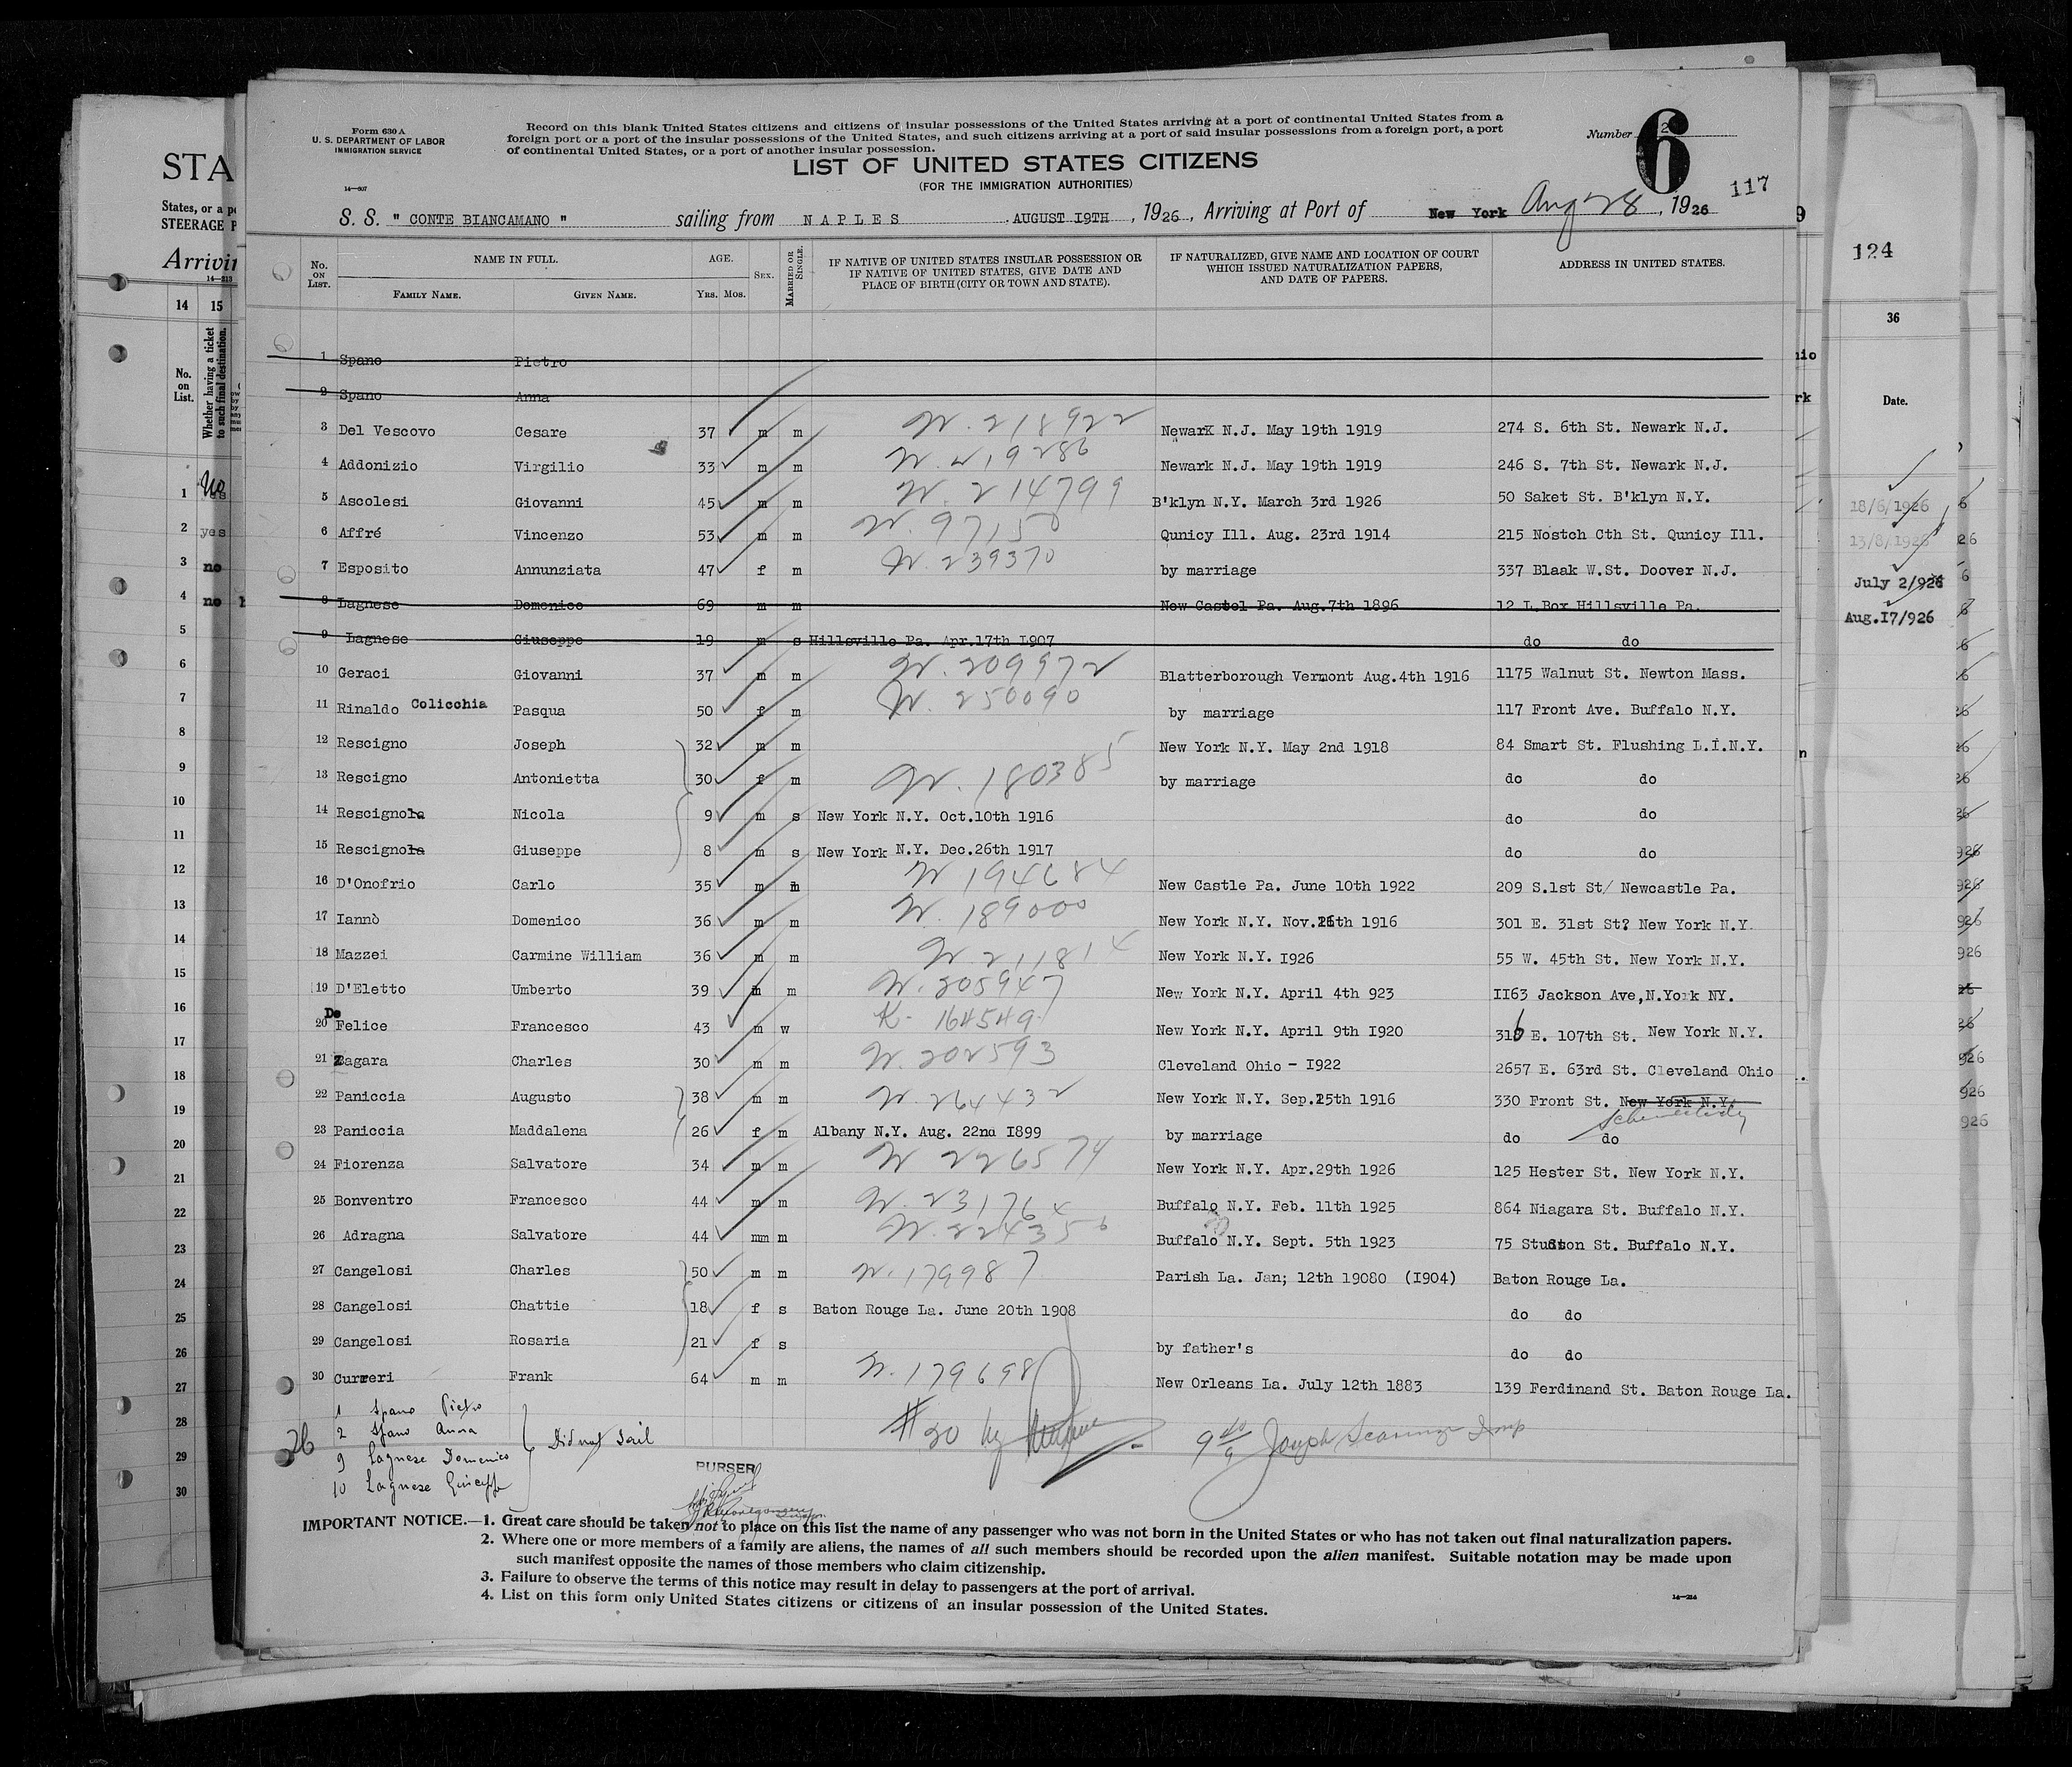 Form 630 A
U. S. DEPARTMENT OF LABOR
IMMIGRATION SERVICE
14—607
Record on this blank United States citizens and citizens of insular possessions of the United States arriving at a port of continental United States from a
foreign port or a port of the insular possessions of the United States, and such citizens arriving at a port of said insular possessions from a foreign port, a port
of continental United States, or a port of another insular possession.
LIST OF UNITED STATES CITIZENS
(FOR THE IMMIGRATION AUTHORITIES)
Number 2
6
117
S. S. " CONTE BIANCAMANO " sailing from NAPLES AUGUST I9TH , 1926 , Arriving at Port of New York Aug 28 , 1926
No. ON LIST. NAME IN FULL. AGE. SEX. MARRIED OR SINGLE. IF NATIVE OF UNITED STATES INSULAR POSSESSION OR IF NATIVE OF UNITED STATES, GIVE DATE AND PLACE OF BIRTH (CITY OR TOWN AND STATE). IF NATURALIZED, GIVE NAME AND LOCATION OF COURT WHICH ISSUED NATURALIZATION PAPERS, AND DATE OF PAPERS. ADDRESS IN UNITED STATES.
FAMILY NAME. GIVEN NAME. YRS. MOS.
1 Spano Pietro
2 Spano Anna
3 Del Vescovo Cesare 37 m m N. 218922 NewarK N.J. May 19th 1919 274 S. 6th St. Newark N.J.
4 Addonizio Virgilio 33 m m N. 219286 Newark N.J. May 19th 1919 246 S. 7th St. Newark N.J.
5 Ascolesi Giovanni 45 m m N. 214799 B'klyn N.Y. March 3rd 1926 50 Saket St. B'klyn N.Y.
6 Affré Vincenzo 53 m m N. 97150 Qunicy Ill. Aug. 23rd 1914 215 Nostch Cth St. Qunicy Ill.
7 Esposito Annunziata 47 f m N. 239370 by marriage 337 Blaak W.St. Doover N.J.
8 Lagnese Domenico 69 m m New Castel Pa. Aug.7th 1896 12 L Box Hillsville Pa.
9 Lagnese Giuseppe 19 m s Hillsville Pa. Apr.17th I907 do do
10 Geraci Giovanni 37 m m N. 209972 Blatterborough Vermont Aug.4th 1916 1175 Walnut St. Newton Mass.
11 Rinaldo Colicchia Pasqua 50 f m N. 250090 by marriage 117 Front Ave. Buffalo N.Y.
12 Rescigno Joseph 32 m m New York N.Y. May 2nd 1918 84 Smart St. Flushing L.I.N.Y.
13 Rescigno Antonietta 30 f m N. 180385 by marriage do do
14 Rescignola Nicola 9 m s New York N.Y. Oct.10th 1916 do do
15 Rescignola Giuseppe 8 m s New York N.Y. Dec.26th 1917 do do
16 D'Onofrio Carlo 35 m m N 194684 New Castle Pa. June 10th 1922 209 S.1st St/ Newcastle Pa.
17 Iannò Domenico 36 m m N. 189000 New York N.Y. Nov. th 1916 301 E. 31st St? New York N.Y.
18 Mazzei Carmine William 36 m m N. 211814 New York N.Y. I926 55 W. 45th St. New York N.Y.
19 D'Eletto Umberto 39 m m N. 205947 New York N.Y. April 4th 923 II63 Jackson Ave,N.York NY.
20 De Felice Francesco 43 m w K- 164549 New York N.Y. April 9th I920 316 E. 107th St. New York N.Y.
21 Zagara Charles 30 m m N. 202593 Cleveland Ohio - I922 2657 E. 63rd St. Cleveland Ohio
22 Paniccia Augusto 38 m m N. 264432 New York N.Y. Sep.25th 1916 330 Front St. New York N.Y. Schenectady
23 Paniccia Maddalena 26 f m Albany N.Y. Aug. 22nd I899 by marriage do do
24 Fiorenza Salvatore 34 m m N 226574 New York N.Y. Apr.29th 1926 125 Hester St. New York N.Y.
25 Bonventro Francesco 44 m m N. 231764 Buffalo N.Y. Feb. 11th 1925 864 Niagara St. Buffalo N.Y.
26 Adragna Salvatore 44 mm m N. 224356 Buffalo N.Y. Sept. 5th 1923 75 St. Buffalo N.Y.
27 Cangelosi Charles 50 m m N. 179987 Parish La. Jan; 12th 19080 (I904) Baton Rouge La.
28 Cangelosi Chattie 18 f s Baton Rouge La. June 20th 1908 do do
29 Cangelosi Rosaria 21 f s by father's do do
30 Curreri Frank 64 m m N. 179698 New Orleans La. July 12th 1883 139 Ferdinand St. Baton Rouge La.
1 Spano Pietro
2 Spano Anna
9 Lagnese Domenico
10 Lagnese Giuseppe
Did not Sail
26
#20 by
Joseph Insp
PURSER
IMPORTANT NOTICE.—1. Great care should be taken not to place on this list the name of any passenger who was not born in the United States or who has not taken out final naturalization papers.
2. Where one or more members of a family are aliens, the names of all such members should be recorded upon the alien manifest. Suitable notation may be made upon
such manifest opposite the names of those members who claim citizenship.
3. Failure to observe the terms of this notice may result in delay to passengers at the port of arrival.
4. List on this form only United States citizens or citizens of an insular possession of the United States.
14—214
STA
States, or a
STEERAGE P
Arrivin
14—213
14 15
No. on List.
Whether having a ticket to such final destination.
1 No
2 yes
3 no
4 no
5
6
7
8
9
10
11
12
13
14
15
16
17
18
19
20
21
22
23
24
25
26
27
28
29
30
124
36
Date.
18/6/1926
13/8/1926
July 2/926
Aug.I7/926